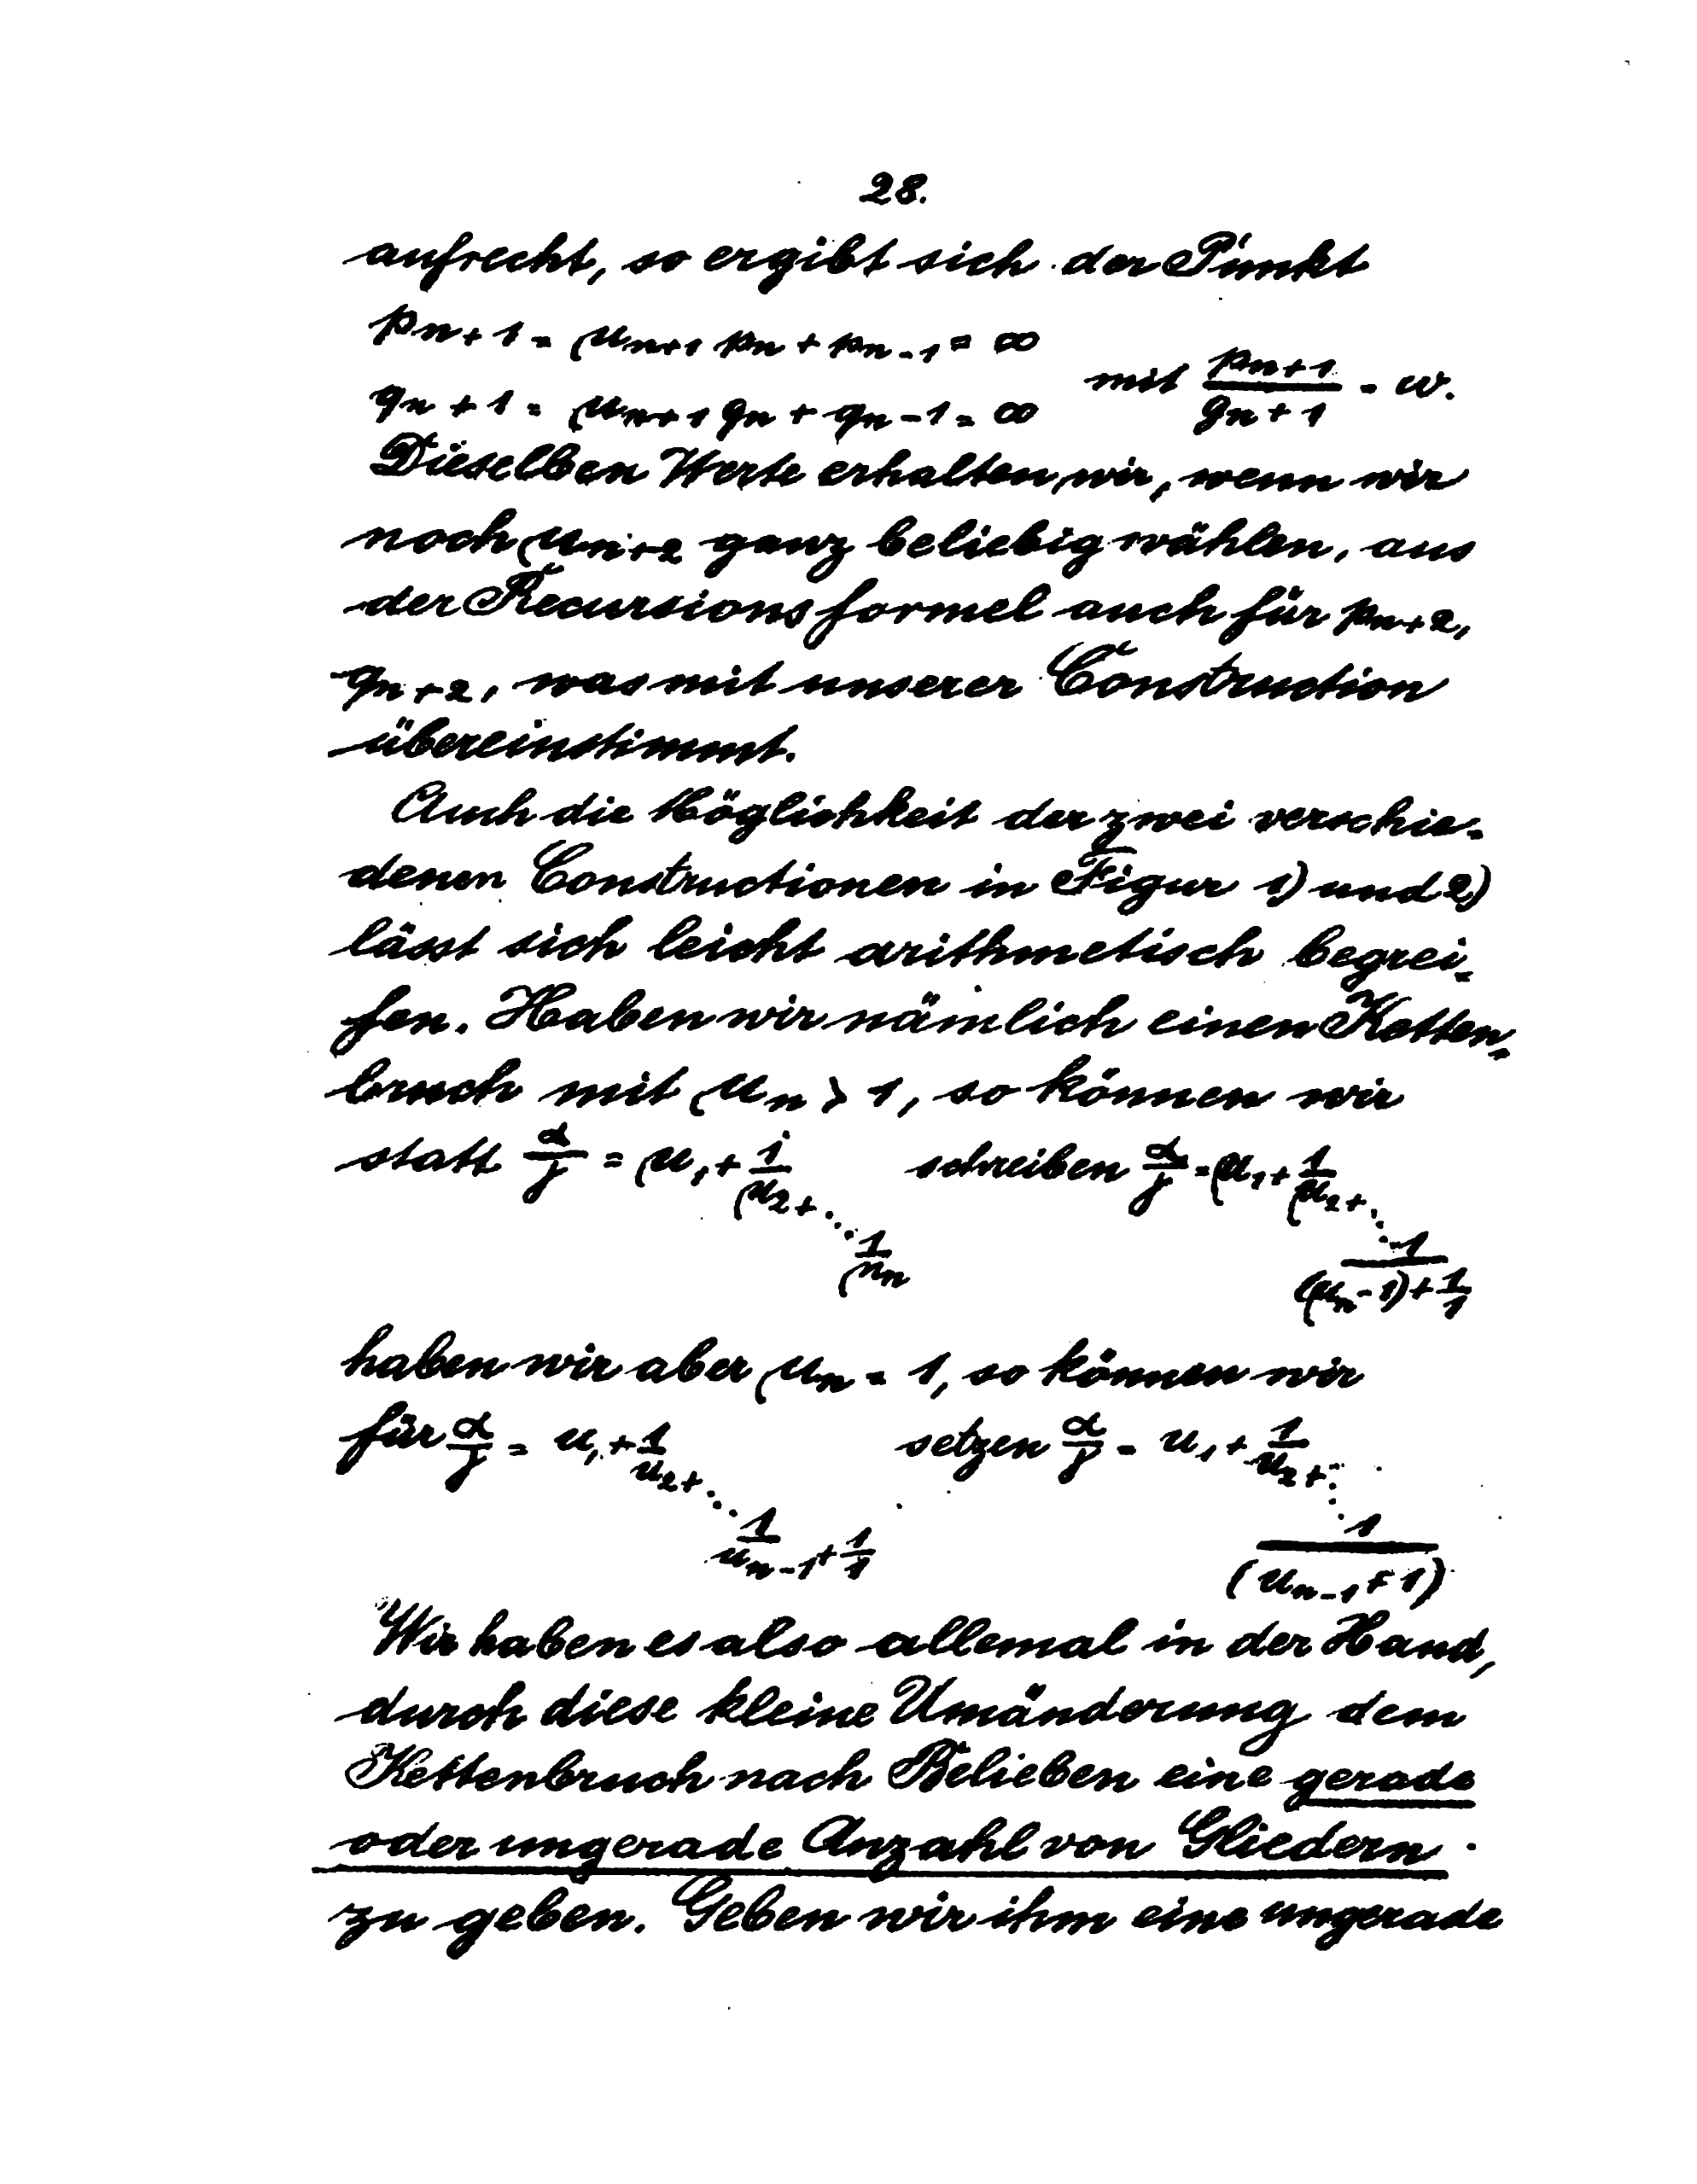 28.
aufrecht, so ergibt sich der Punkt
p_{n+1} = μ_{n+1} p_n + p_{n-1} = ∞
q_{n+1} = μ_{n+1} q_n + q_{n-1} = ∞ mit \frac{p_{n+1}}{q_{n+1}} = ω.
Dieselben Werte erhalten wir, wenn wir
noch μ_{n+2} ganz beliebig wählen, aus
der Recursionsformel auch für p_{n+2},
q_{n+2}, was mit unserer Construction
übereinstimmt.
Auch die Möglichkeit der zwei verschie-
denen Constructionen in Figur 1) und 2)
lässt sich leicht arithmetisch begrei-
fen. Haben wir nämlich einen Ketten-
bruch mit μ_n > 1, so können wir
statt \frac{α}{γ} = μ_1 + \frac{1}{μ_2 + ⋱ \frac{1}{μ_n}} schreiben \frac{α}{γ} = μ_1 + \frac{1}{μ_2 + ⋱ \frac{1}{(μ_n - 1) + \frac{1}{1}}}
haben wir aber μ_n = 1, so können wir
für \frac{α}{γ} = u_1 + \frac{1}{u_2 + ⋱ \frac{1}{u_{n-1} + \frac{1}{1}}} setzen \frac{α}{γ} = u_1 + \frac{1}{u_2 + ⋱ \frac{1}{(u_{n-1} + 1)}}
Wir haben es also allemal in der Hand,
durch diese kleine Umänderung dem
Kettenbruch nach Belieben eine gerade
oder ungerade Anzahl von Gliedern
zu geben. Geben wir ihm eine ungerade